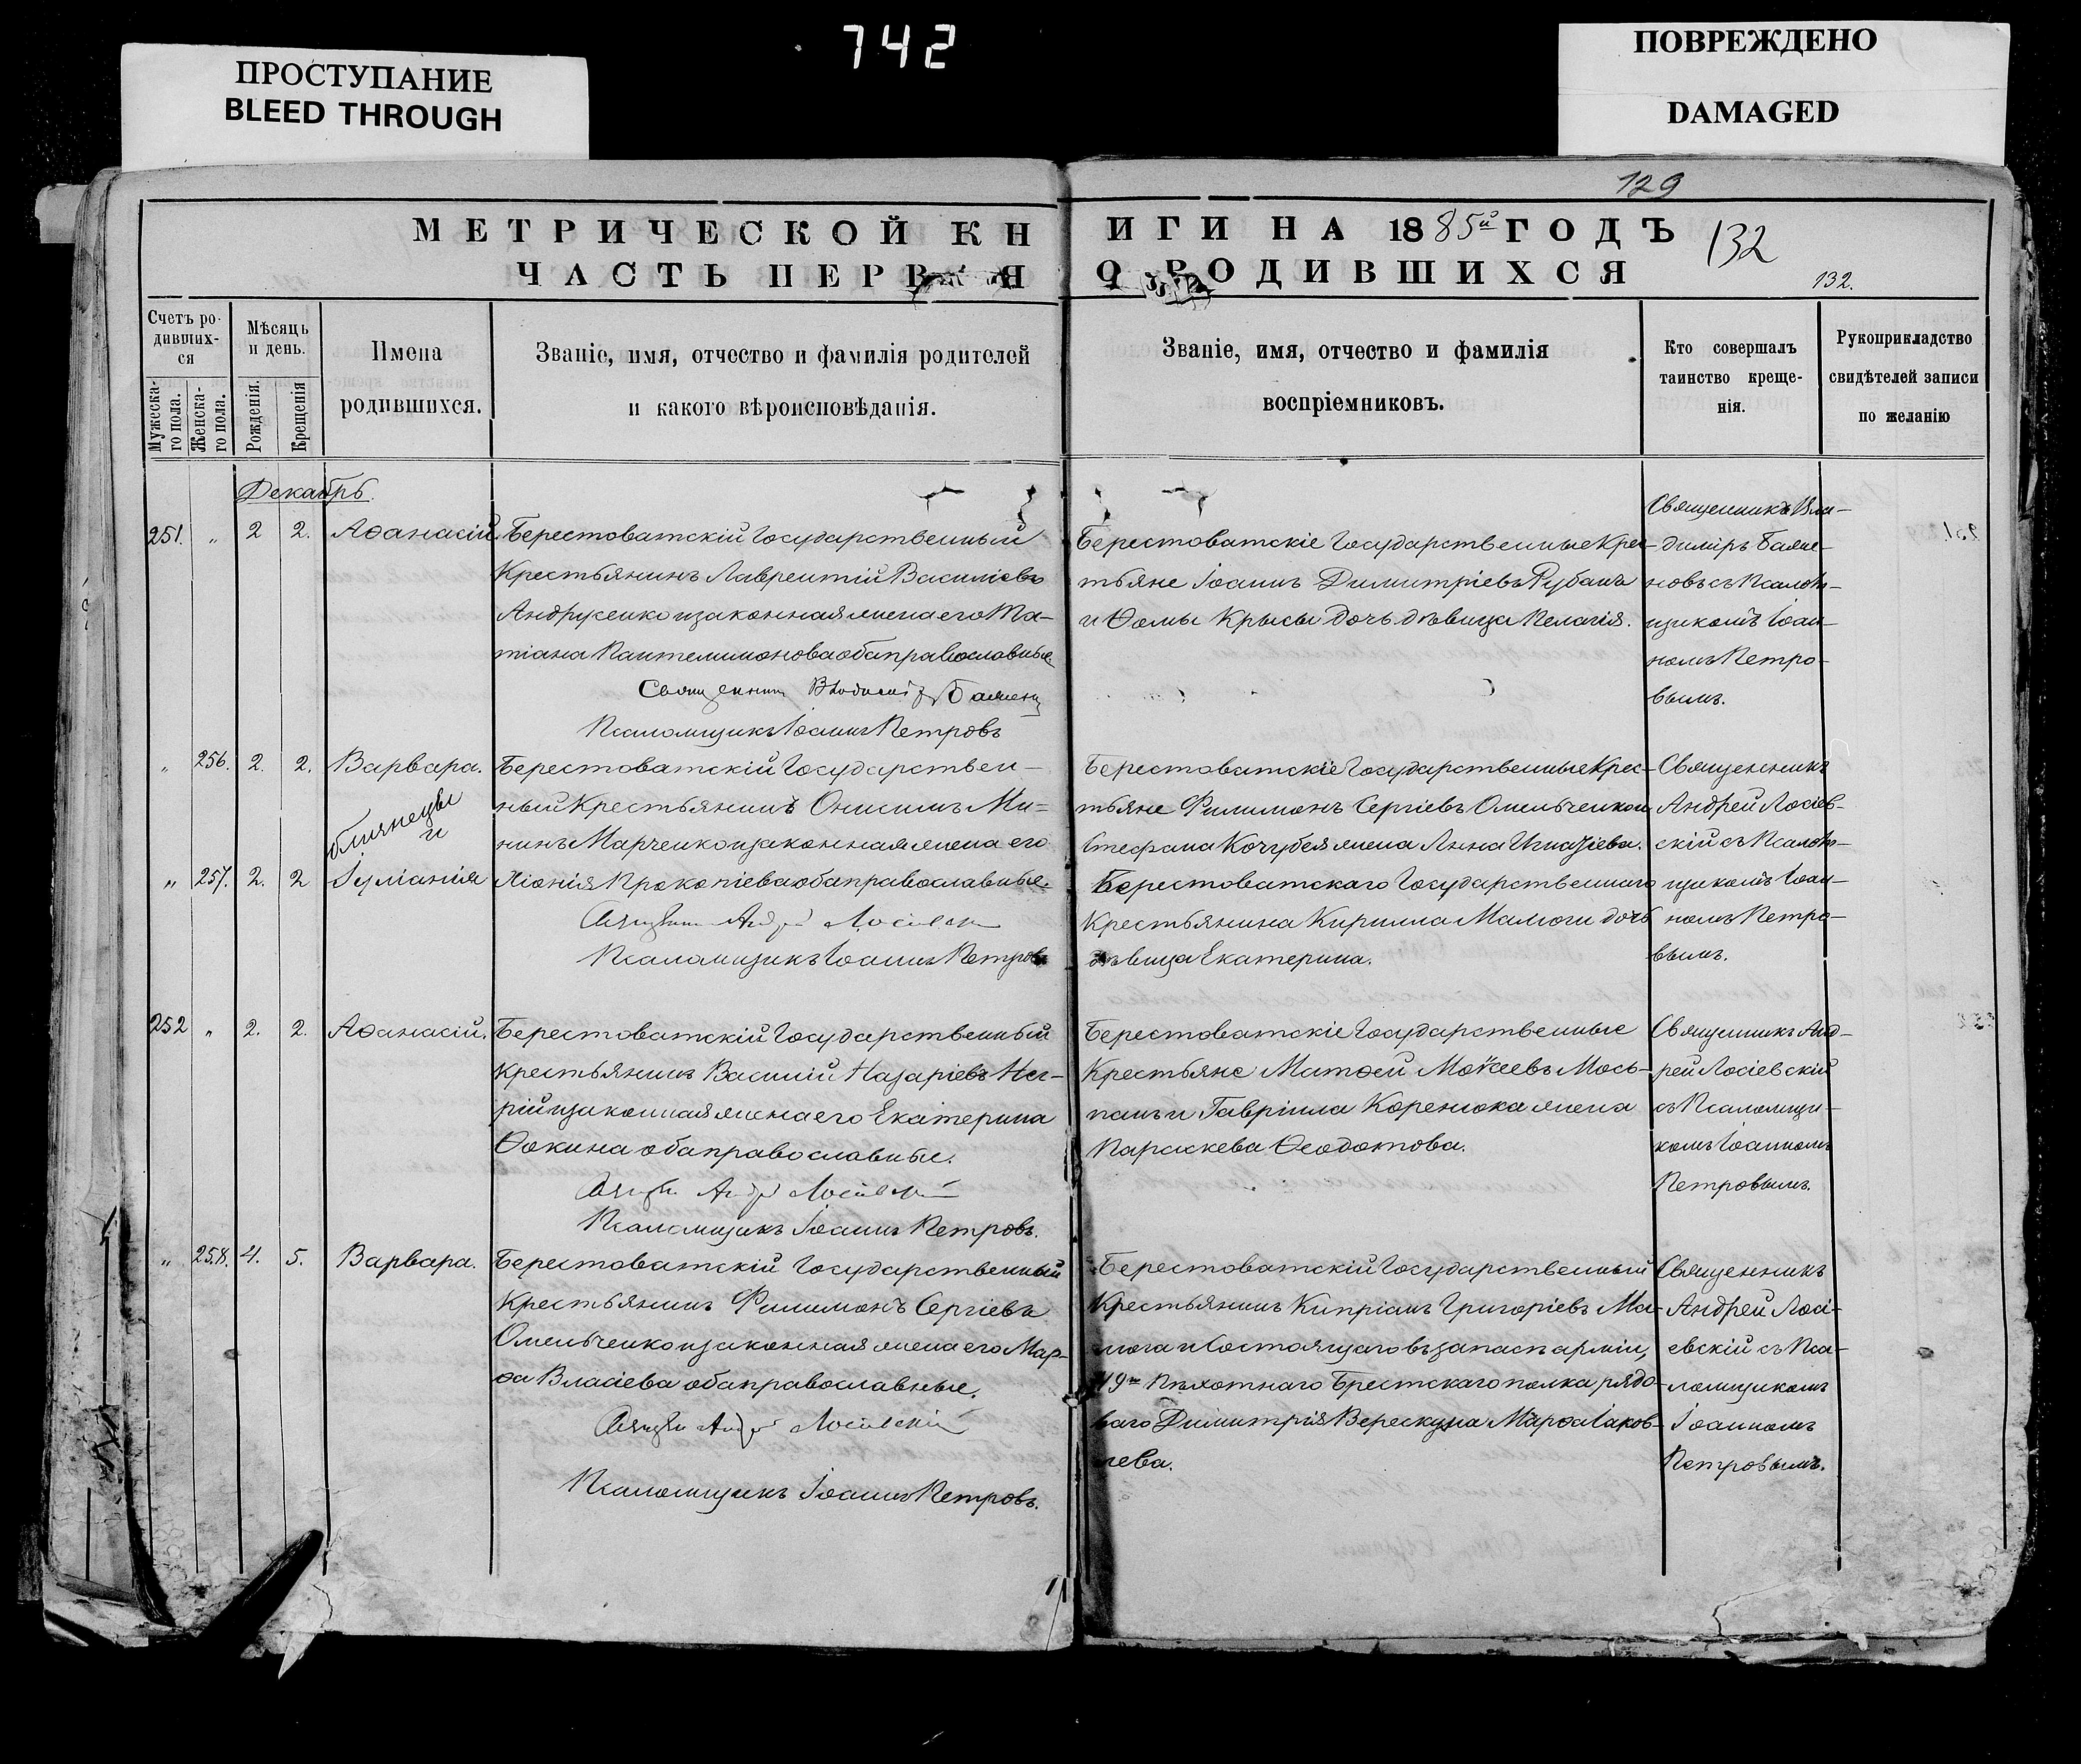 742
ПРОСТУПАНИЕ
BLEED THROUGH
ПОВРЕЖДЕНО
DAMAGED
129
МЕТРИЧЕСКОЙ КНИГИ НА 1885й ГОДЪ
132
ЧАСТЬ ПЕРВАЯ О РОДИВШИХСЯ
132.
Счетъ ро-
дивших-
ся
Мужеска-
го пола.
Женска-
го пола.
Мѣсяцъ
и день.
Рожденія.
Крещенія
Имена
родившихся.
Званіе, имя, отчество и фамилія родителей
и какого вѣроисповѣданія.
Званіе, имя, отчество и фамилія
воспріемниковъ.
Кто совершалъ
таинство креще-
нія.
Рукоприкладство
свидѣтелей записи
по желанію
Декабрь.
251. " 2 2. Аѳанасій.
Берестоватскій Государственный
Крестьянинъ Лаврентій Василіевъ
Андрусенко и законная жена его Та-
тіана Пантелимонова оба православные
Священникъ Владиміръ Баженовъ
Псаломщикъ Іоаннъ Петровъ
Берестоватскіе Государственные Крес-
тьяне Іоаннъ Димитріевъ Рубанъ
и Ѳомы Крысы дочь дѣвица Пелагія.
Священникъ Вла-
диміръ Баже-
новъ съ Псалом-
щикомъ Іоан-
номъ Петро-
вымъ.
" 256. 2. 2. Варвара.
близнецы
и
" 257. 2. 2 Іуліанія
Берестоватскій Государствен-
ный Крестьянинъ Онисимъ Ми-
нинъ Марченко и законная жена его
Хіонія Прокопіева оба православные.
Священникъ Андрей Лосіевскій
Псаломщикъ Іоаннъ Петровъ
Берестоватскіе Государственные Крес-
тьяне Филимонъ Сергіевъ Омельченко и
Стефана Кочубея жена Анна Игнатіева.
Берестоватскаго Государственнаго
Крестьянина Кирилла Малюги дочь
дѣвица Екатерина.
Священникъ
Андрей Лосіев-
скій съ Псалом-
щикомъ Іоан-
номъ Петро-
вымъ.
252 " 2. 2. Аѳанасій.
Берестоватскій Государственный
Крестьянинъ Василій Назаріевъ
и законная жена его Екатерина
Ѳокина оба православные.
Священникъ Андрей Лосіевскій
Псаломщикъ Іоаннъ Петровъ.
Берестоватскіе Государственные
Крестьяне Матѳей Моѵсеевъ Мось-
панъ и Гавріила Коренюка жена
Параскева Ѳеодотова.
Священникъ Анд-
рей Лосіевскій
съ Псаломщи-
комъ Іоанномъ
Петровымъ.
" 258. 4. 5. Варвара.
Берестоватскій Государственный
Крестьянинъ Филимонъ Сергіевъ
Омельченко и законная жена его Мар-
ѳа Власіева оба православные.
Священникъ Андрей Лосіевскій
Псаломщикъ Іоаннъ Петровъ.
Берестоватскій Государственный
Крестьянинъ Кипріанъ Григоріевъ Ма-
люга и Состоящаго въ запасѣ арміи,
49го Пѣхотнаго Брестскаго полка, рядо-
ваго Димитрія Верескуна Марѳа Іаков-
лева.
Священникъ
Андрей Лосі-
евскій съ Пса-
ломщикомъ
Іоанномъ
Петровымъ.